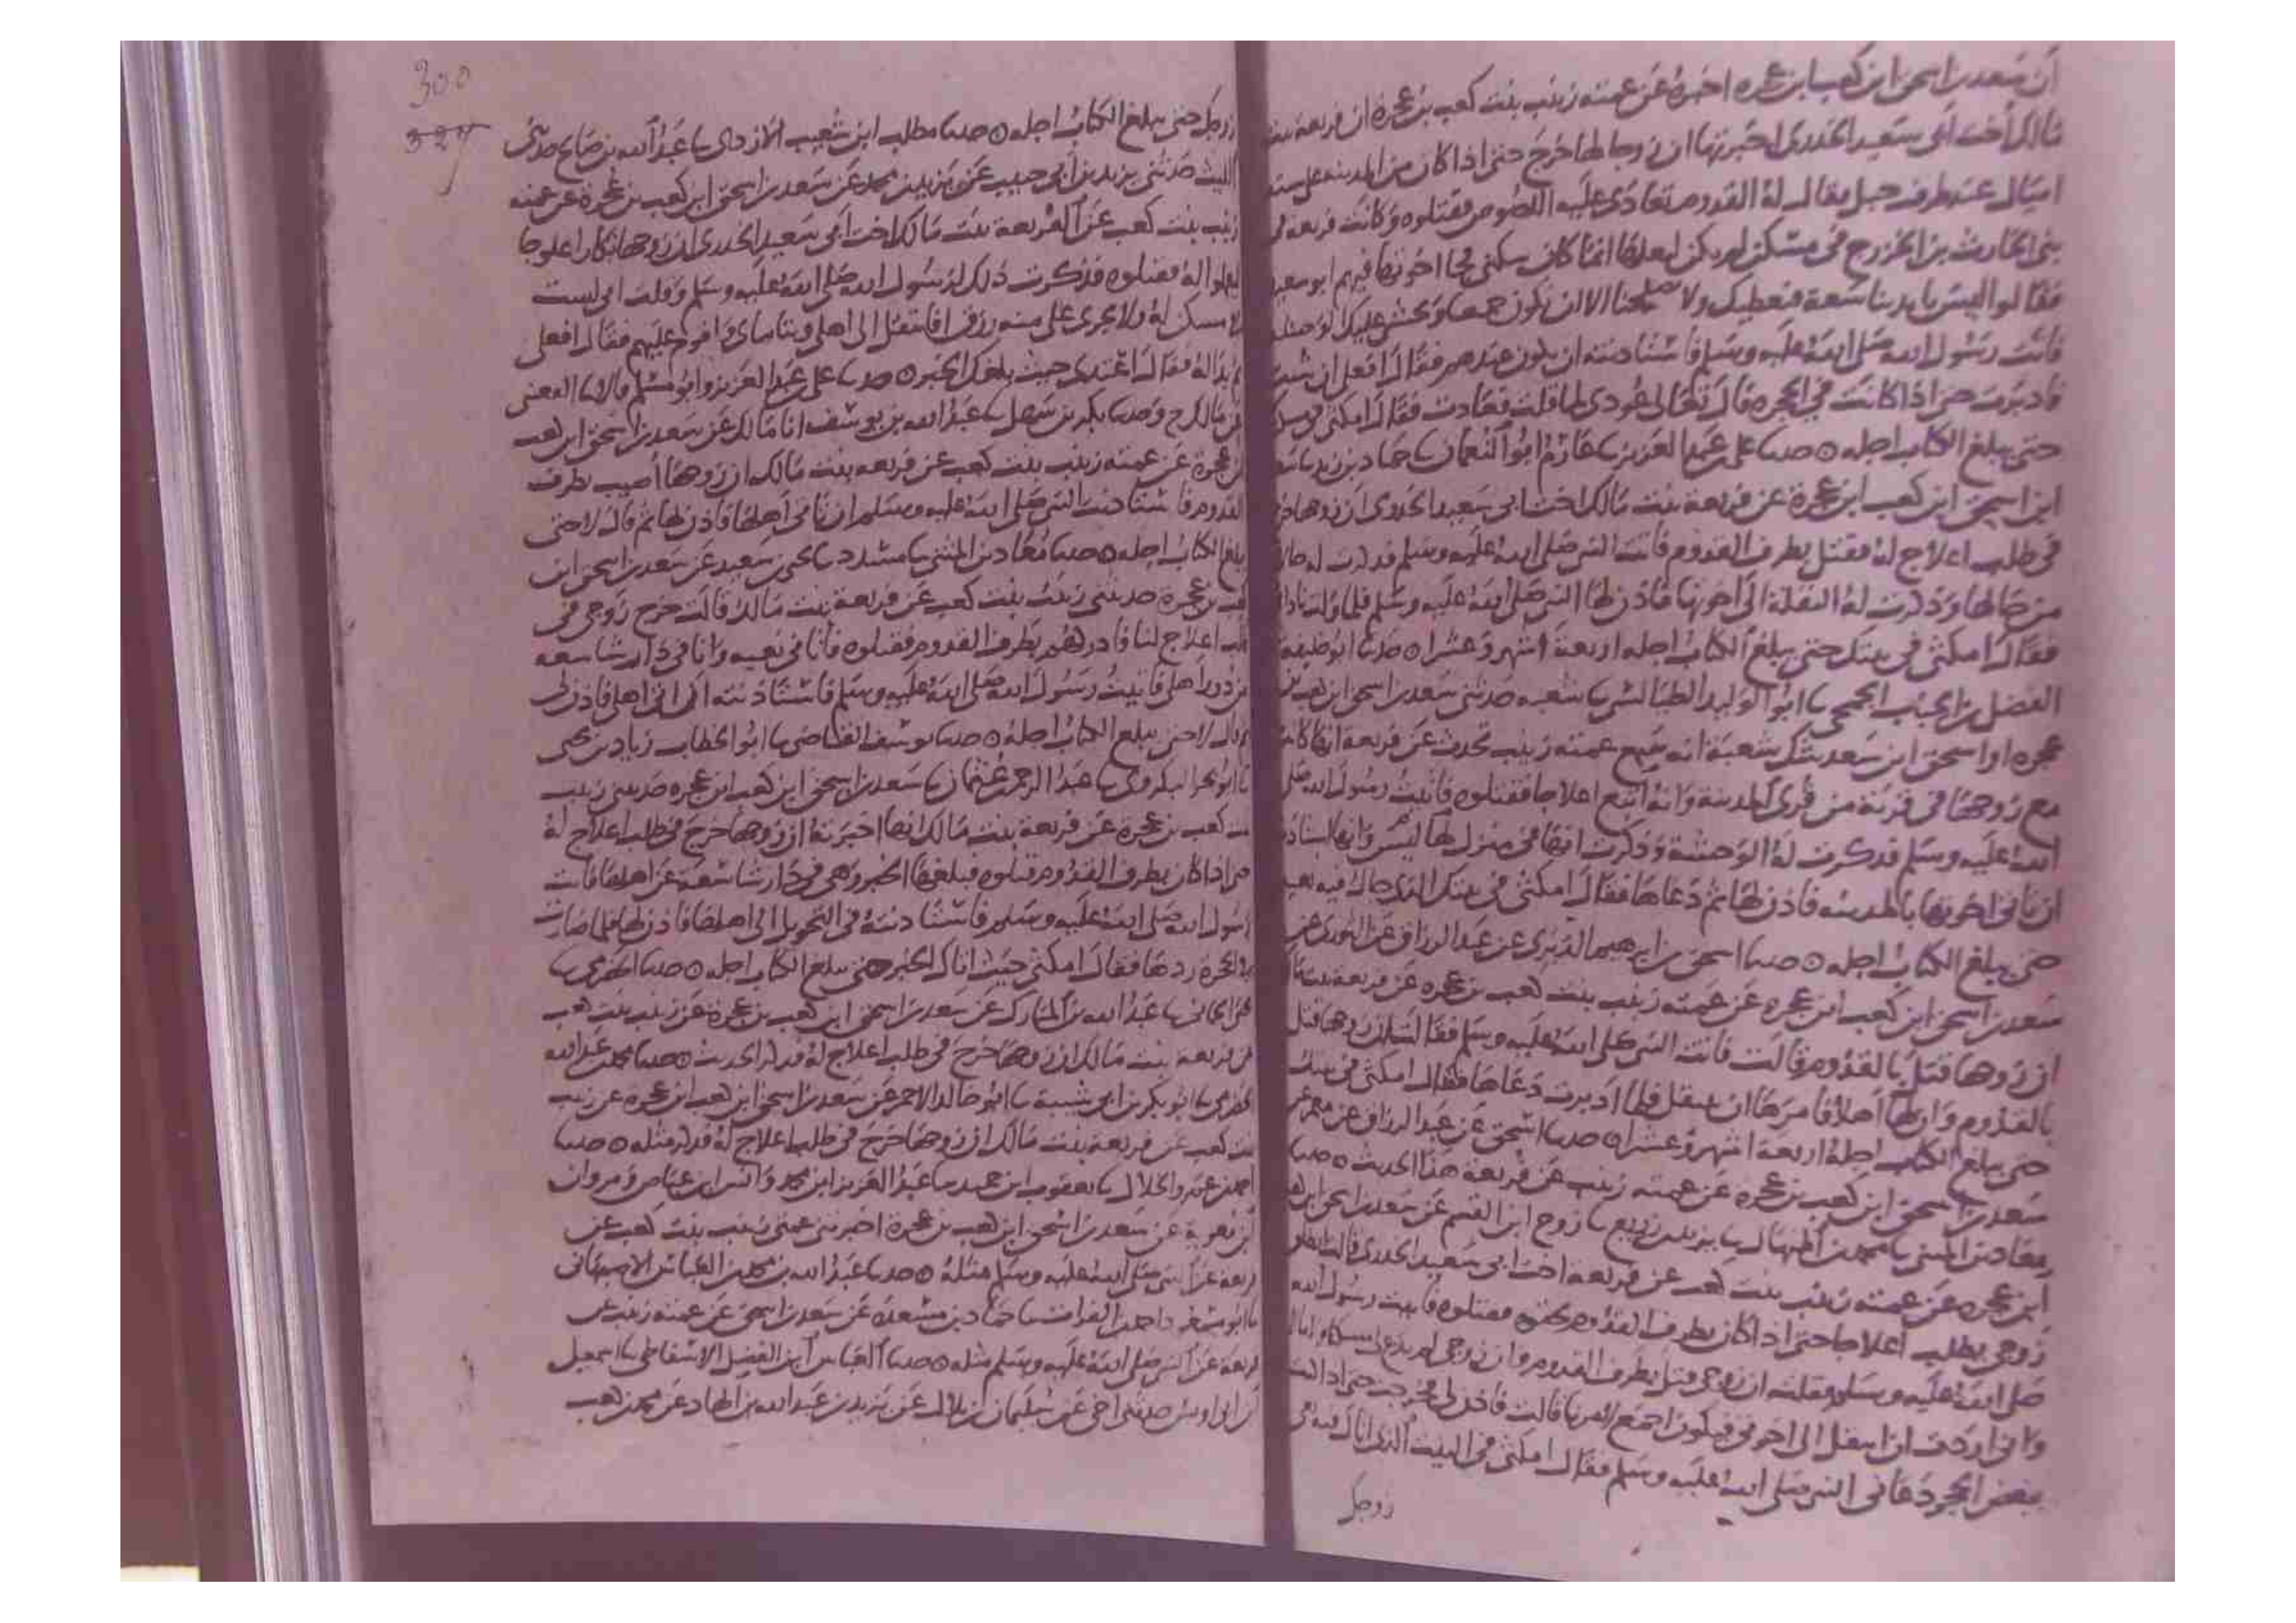 ان سعد بن اسحق ابن كعب ابن عجره اخبره عن عمته زينب بنت كعب بن عجرة ان فريعة بنت
مالك أخت ابي سعيد الخدري اخبرتها ان زوجا لها خرج حتى اذا كان من المدينه على ستة
اميال عند طرف جبل يقال له القدوم تعادى عليه اللصوص فقتلوه وكانت فريعه في
بني الحارث بن الخزرج في مسكن لم يكن لبعلها انما كان سكنى فجا اخوتها فيهم ابو سعيد
فقالوا ليس بايدينا سعة فنعطيك ولا الا ان نكون جميعا ونخشى عليك الوحشة
فاتت رسول الله صلى الله عليه وسلم فاستاذنته ان تكون عندهم فقال افعلى ان شئت
فادبرت حتى اذا كانت في الحجره قال تعالى عودي لما قلت فعادت فقال امكثي
حتى يبلغ الكتاب اجله ۞ حدثنا علي بن عبد العزيز ثنا عارم ابو النعمان ثنا حماد بن زيد ثنا سعد
ابن اسحق ابن كعب ابن عجرة عن فريعة بنت مالك اخت ابي سعيد الخدري ان زوجها خرج
في طلب اعلاج له فقتل بطرف القدوم فاتت النبي صلى الله عليه وسلم فذكرت له حالا
من حالها وذكرت له النقلة الى اخوتها فاذن لها النبي صلى الله عليه وسلم فلما ولت ناداها
فقال امكثي في بيتك حتى يبلغ الكتاب اجله اربعة اشهر وعشرا ۞ حدثنا ابو خليفة
الفضل بن الحباب الجمحي ثنا ابو الوليد الطيالسي ثنا شعبه حدثني سعد بن اسحق ابن كعب بن
عجره او اسحق ابن سعد شك شعبة انه سمع عمته زينب تحدث عن فريعة انها كانت
مع زوجها في قرية من قرى المدينة وانه اتبع اعلاجا فقتلوه فاتيت رسول الله صلى
الله عليه وسلم فذكرت له الوحشة وذكرت انها في منزل لها ليس وانها استاذنته
ان تاتي اخوتها بالمدينه فاذن لها ثم دعاها فقال امكثي في بيتك الذي جاك فيه نعيه
حتى يبلغ الكتاب اجله ۞ حدثنا اسحق بن ابرهيم الدبري عن عبد الرزاق عن الثوري عن
سعد بن اسحق ابن كعب ابن عجره عن عمته زينب بنت كعب بن عجره عن فريعة بنت مالك
ان زوجها قتل بالقدوم قالت فاتت النبي صلى الله عليه وسلم فقالت ان زوجها قتل
بالقدوم وان لها اهلا فامرها ان تنتقل فلما ادبرت دعاها فقال امكثي في بيتك
حتى يبلغ الكتاب اجله اربعة اشهر وعشرا ۞ حدثنا اسحق عن عبد الرزاق عن معمر عن
سعد بن اسحق ابن كعب بن عجره عن عمته زينب عن فريعة هذا الحديث ۞ حدثنا
معاذ بن المثنى ثنا محمد بن المنهال ثنا يزيد بن زريع ثنا روح ابن القسم عن سعد بن اسحق ابن كعب
ابن عجره عن عمته زينب بنت كعب عن فريعه اخت ابي سعيد الخدري قالت انطلق
زوجي يطلب اعلاجا حتى اذا كان بطرف القدوم فقتلوه فاتيت رسول الله
صلى الله عليه وسلم فقلت ان زوجي قتل بطرف القدوم وان زوجي لم يدع لي مسكنا ولا مالا
واني اردت ان انتقل الى اخوتي فيكون اجمع لامرنا قالت فاذن لي فخرجت حتى اذا كنت
ببعض الحجر دعاني النبي صلى الله عليه وسلم فقال امكثي في البيت الذي اتاك فيه نعي
زوجك
300
327
زوجك حتى يبلغ الكتاب اجله ۞ حدثنا مطلب ابن شعيب الازدي ثنا عبد الله بن صالح حدثني
الليث حدثني يزيد بن ابي حبيب عن يزيد بن محمد عن سعد بن اسحق ابن كعب بن عجرة عن عمته
زينب بنت كعب عن الفريعة بنت مالك اخت ابي سعيد الخدري ان زوجها تكارا علوجا
ليعملوا له فقتلوه فذكرت ذلك لرسول الله صلى الله عليه وسلم وقلت اني ليست
لا مسكن له ولا يجري علي منه رزق افانتقل الى اهلي ويتاماي فاقوم عليهم فقال افعلي
ثم بدا له فقال اعتدي حيث بلغك الخبر ۞ حدثنا علي بن عبد العزيز وابو مسلم قالا ثنا القعنبي
عن مالك ح وحدثنا بكر بن سهل ثنا عبد الله بن يوسف انا مالك عن سعد بن اسحق ابن كعب
بن عجرة عن عمته زينب بنت كعب عن فريعه بنت مالك ان زوجها اصيب بطرف
القدوم فاستاذنت النبي صلى الله عليه وسلم ان تاتي اهلها فاذن لها ثم قال لا حتى
يبلغ الكتاب اجله ۞ حدثنا معاذ بن المثنى ثنا مسدد ثنا يحيى بن سعيد عن سعد بن اسحق ابن
كعب بن عجره حدثتني زينب بنت كعب عن فريعة بنت مالك قالت خرج زوجي في
طلب اعلاج لنا فادركهم بطرف القدوم فقتلوه فاتاني نعيه وانا في دار شاسعه
من دور اهلي فاتيت رسول الله صلى الله عليه وسلم فاستاذنته اني اتي اهلي فاذن لي
ثم قال لا حتى يبلغ الكتاب اجله ۞ حدثنا يوسف القاضي ثنا ابو الخطاب زياد بن يحيى
ثنا ابو بحر البكروي ثنا عبد الرحمن بن عثمان ثنا سعد بن اسحق ابن كعب ابن عجره حدثتني زينب
بنت كعب بن عجرة عن فريعة بنت مالك انها اخبرته ان زوجها خرج في طلب اعلاج له
حتى اذا كان بطرف القدوم قتلوه فبلغها الخبر وهي في دار شاسعة عن اهلها فاتت
رسول الله صلى الله عليه وسلم فاستاذنته في التحويل الى اهلها فاذن لها فلما صارت
في الحجرة ردها فقال امكثي حيث اتاك الخبر حتى يبلغ الكتاب اجله ۞ حدثنا الحضرمي ثنا
يحيى الحماني ثنا عبد الله بن المبارك عن سعد بن اسحق ابن كعب بن عجرة عن زينب بنت كعب
عن فريعه بنت مالك ان زوجها خرج في طلب اعلاج له فذكر الحديث ۞ حدثنا محمد بن عبد الله
الحضرمي ثنا ابو بكر بن ابي شيبة ثنا ابو خالد الاحمر عن سعد بن اسحق ابن كعب ابن عجرة عن زينب
بنت كعب عن فريعه بنت مالك ان زوجها خرج في طلب اعلاج له فذكر مثله ۞ حدثنا
احمد بن عمرو الخلال ثنا يعقوب ابن حميد ثنا عبد العزيز ابن محمد وانس ابن عياض ومروان
ابن معوية عن سعد بن اسحق ابن كعب بن عجرة اخبرتني عمتي زينب بنت كعب عن
فريعة عن النبي صلى الله عليه وسلم مثله ۞ حدثنا عبد الله بن محمد بن العباس الاصبهاني
ثنا ابو مسعود احمد بن الفرات ثنا حماد بن مسعدة عن سعد بن اسحق عن عمته زينب عن
فريعة عن النبي صلى الله عليه وسلم مثله ۞ حدثنا العباس ابن الفضل الاسفاطي ثنا اسمعيل
بن ابي اويس حدثني اخي عن سليمان بن بلال عن يزيد بن عبد الله بن الهاد عن محمد بن كعب